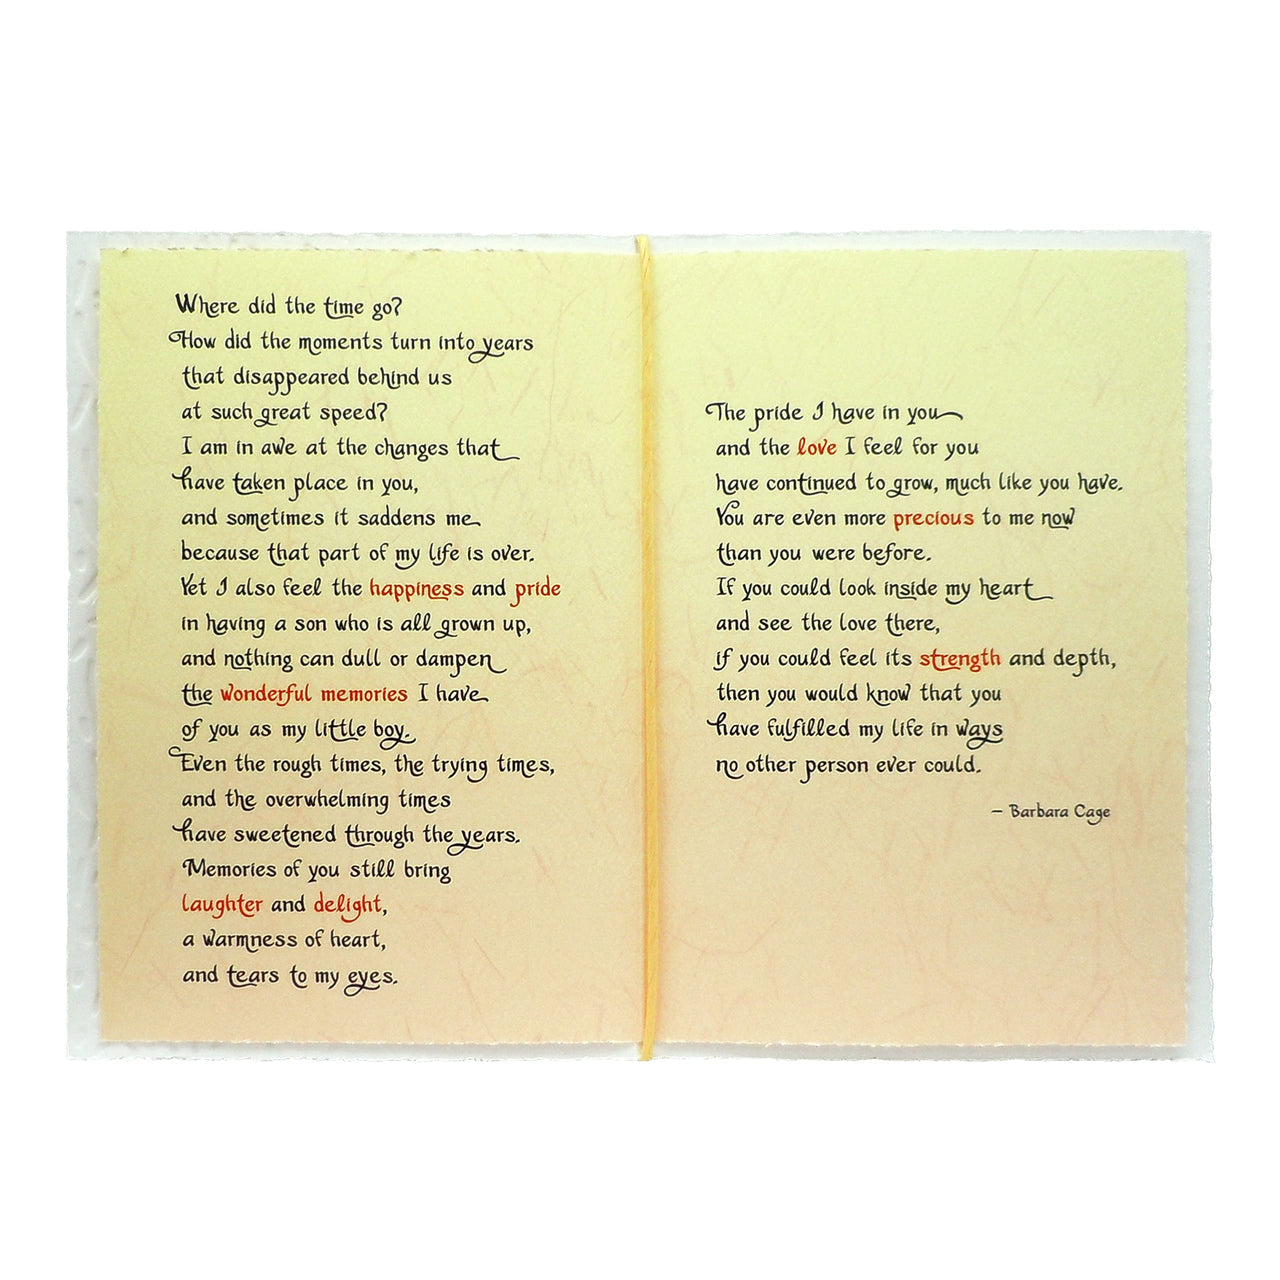 Where did the time go?
How did the moments turn into years
that disappeared behind us
at such great speed?
I am in awe at the changes that
have taken place in you,
and sometimes it saddens me
because that part of my life is over.
Yet I also feel the happiness and pride
in having a son who is all grown up,
and nothing can dull or dampen
the wonderful memories I have
of you as my little boy.
Even the rough times, the trying times,
and the overwhelming times
have sweetened through the years.
Memories of you still bring
laughter and delight,
a warmness of heart,
and tears to my eyes.
The pride I have in you
and the love I feel for you
have continued to grow, much like you have.
You are even more precious to me now
than you were before.
If you could look inside my heart
and see the love there,
if you could feel its strength and depth,
then you would know that you
have fulfilled my life in ways
no other person ever could.
– Barbara Cage